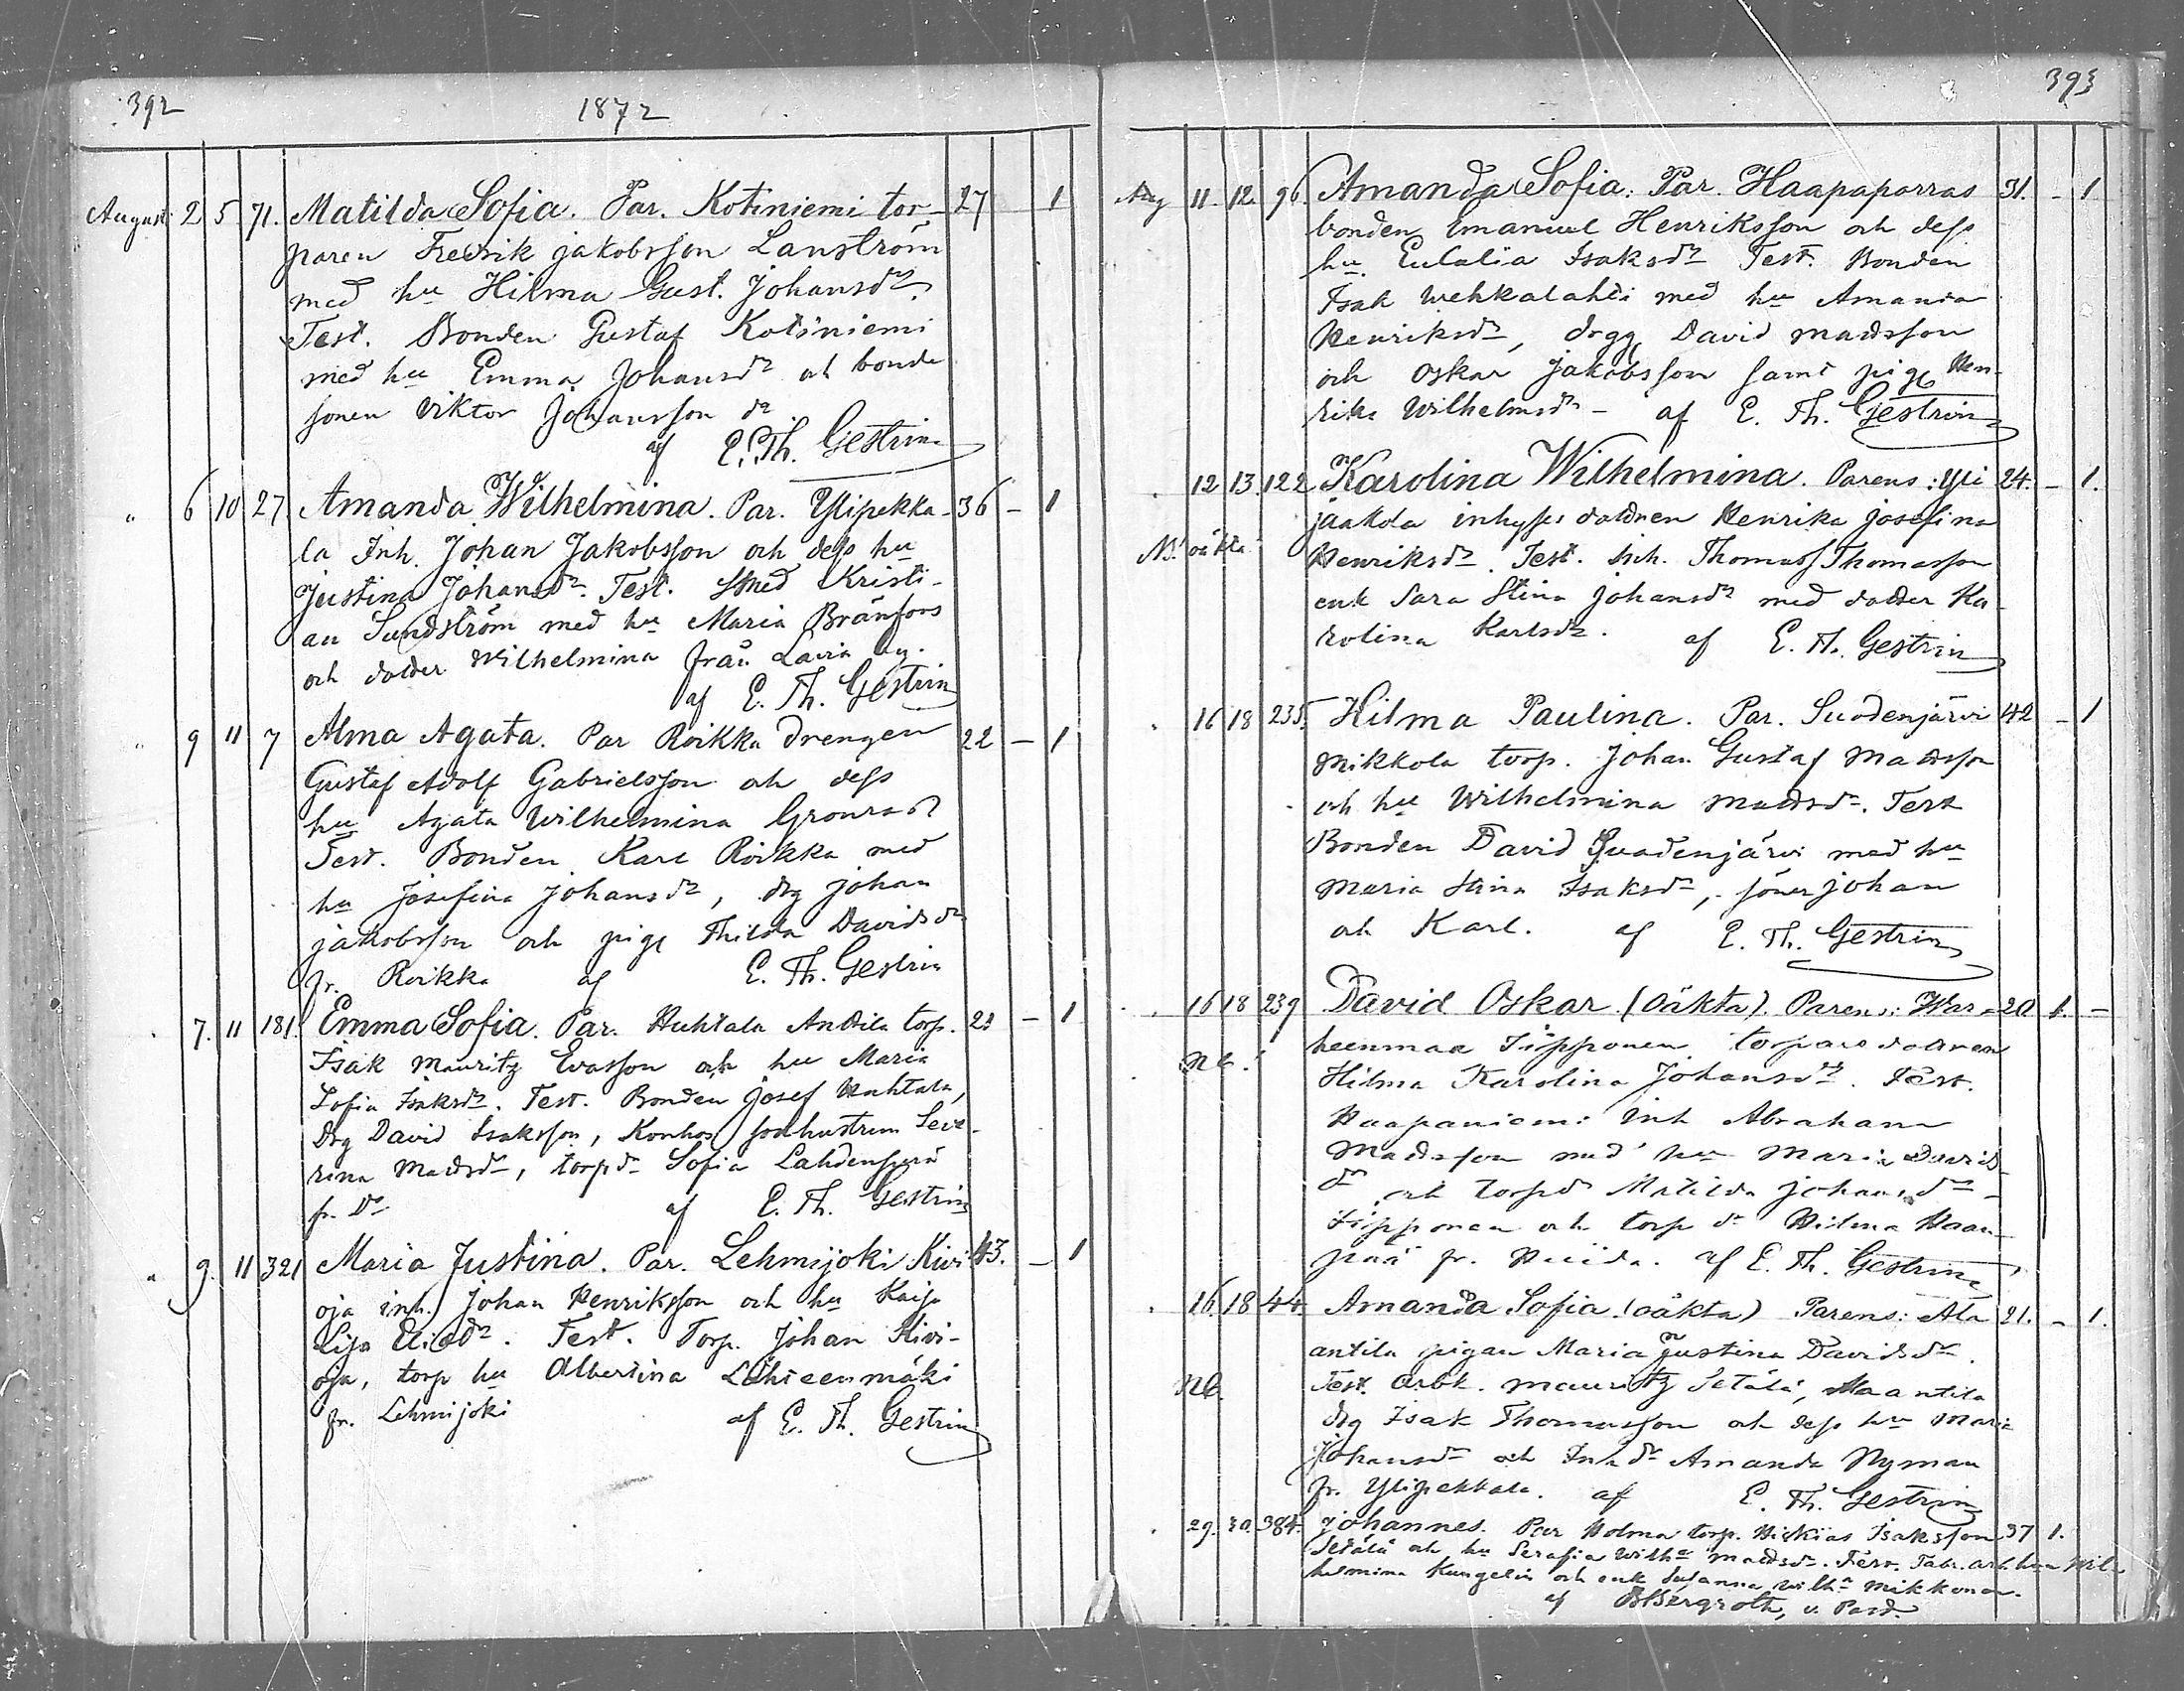 392
1872
August 2 5 71. Matilda Sofia. Par. Kotiniemi tor- 27 1
paren Fredrik Jakobsson Lanström
med hu Hilma Gust. Johansdr.
Test. Bonden Gustaf Kotiniemi
med hu Emma Johansdr och bonde
sonen Viktor Johansson dr
af E. Th. Gestrin
" 6 10 27. Amanda Wilhelmina. Par. Ylipekka- 36 - 1
la Inh. Johan Jakobsson och dess hu
Justina Johansdr. Test. Smed Kristi-
an Sundström med hu Maria Bränfors
och dotter Wilhelmina från Lavia
af E. Th. Gestrin
" 9 11 7 Alma Agata. Par Roikka Drengen 22 - 1
Gustaf Adolf Gabrielsson och dess
hu Agata Wilhelmina
Test. Bonden Karl Roikka med
hu Josefina Johansdr, drg Johan
Jakobsson och pig Thilda Davidsdr
fr. Roikka af E. Th. Gestrin
7. 11 181. Emma Sofia. Par. Huhtala Anttila torp. - 1
Isak Mauritz Evasson och hu Maria
Sofia Isaksdr. Test. Bonden Josef Huhtala,
Drg David Isaksson, Konhos Seve-
rina Mattsdr, torpdr Sofia Lahdenperä
fr. Do af E. Th. Gestrin
" 9. 11 321 Maria Justina. Par. Lehmijoki Kivi- 43. - 1
oja inh. Johan Henriksson och hu Kaisa
Lisa Test. Torp. Johan Kivi-
oja, torp hu Albertina Lähteenmäki
fr. Lehmijoki af E. Th. Gestrin
393
Aug 11. 12. 96. Amanda Sofia. Par. Haapaporras 31. - 1
bonden Emanuel Henriksson och dess
hu. Eulalia Isaksdr Test. Bonden
Isak Wehkalahti med hu Amanda
Henriksdr, drgg David Mattsson
och Oskar Jakobsson samt pig Hen-
rika Wilhelmsdr - af E. Th. Gestrin
12 13. 122 Karolina Wilhelmina. Parens: Yli 24. - 1.
jaakola inhyses dottren Henrika Josefina
N! oäkta Henriksdr. Test. Inh. Thomas Thomasson
enk Sara Stina Johansdr med dotter Ka-
rolina Karlsdr. af E. Th. Gestrin
16 18 235. Hilma Paulina. Par. Suodenjärvi 42 - 1
Mikkola torp. Johan Gustaf Mattsson
och hu Wilhelmina Mattsdr. Test
Bonden David Suodenjärvi med hu
Maria Stina Isaksdr, söner Johan
och Karl. af E. Th. Gestrin
16 18 239 David Oskar (Oäkta). Parens: War- 20 1. -
heenmaa Sipponen torpare dottren
NB. Hilma Karolina Johansdr. Test.
Haapaniemi Inh Abraham
Mattsson med hu Maria Davids
dr och torpdr Matilda Johansdr -
Sipponen och torp dr Hilma Haan-
pää fr. af E. Th. Gestrin
16. 18 44. Amanda Sofia (oäkta) Parens: Ala 21. - 1.
antila pigan Maria Justina Davidsdr.
NB. Test. Arbk. Mauritz Setälä, Alaantila
drg Isak Thomasson och dess hu Maria
Johansdr och Inhdr Amanda Nyman
fr. Ylipekkala. af E. Th. Gestrin
29. 30. 384. Johannes. Par Holma torp. Hiskias Isaksson 37 1.
Setälä och hu Serafia Wilha Mattsdr. Test. Fabr. arb. hu Wil-
helmina och enk Susanna Wilha Mikkonen.
af Bergroth, v. Past.